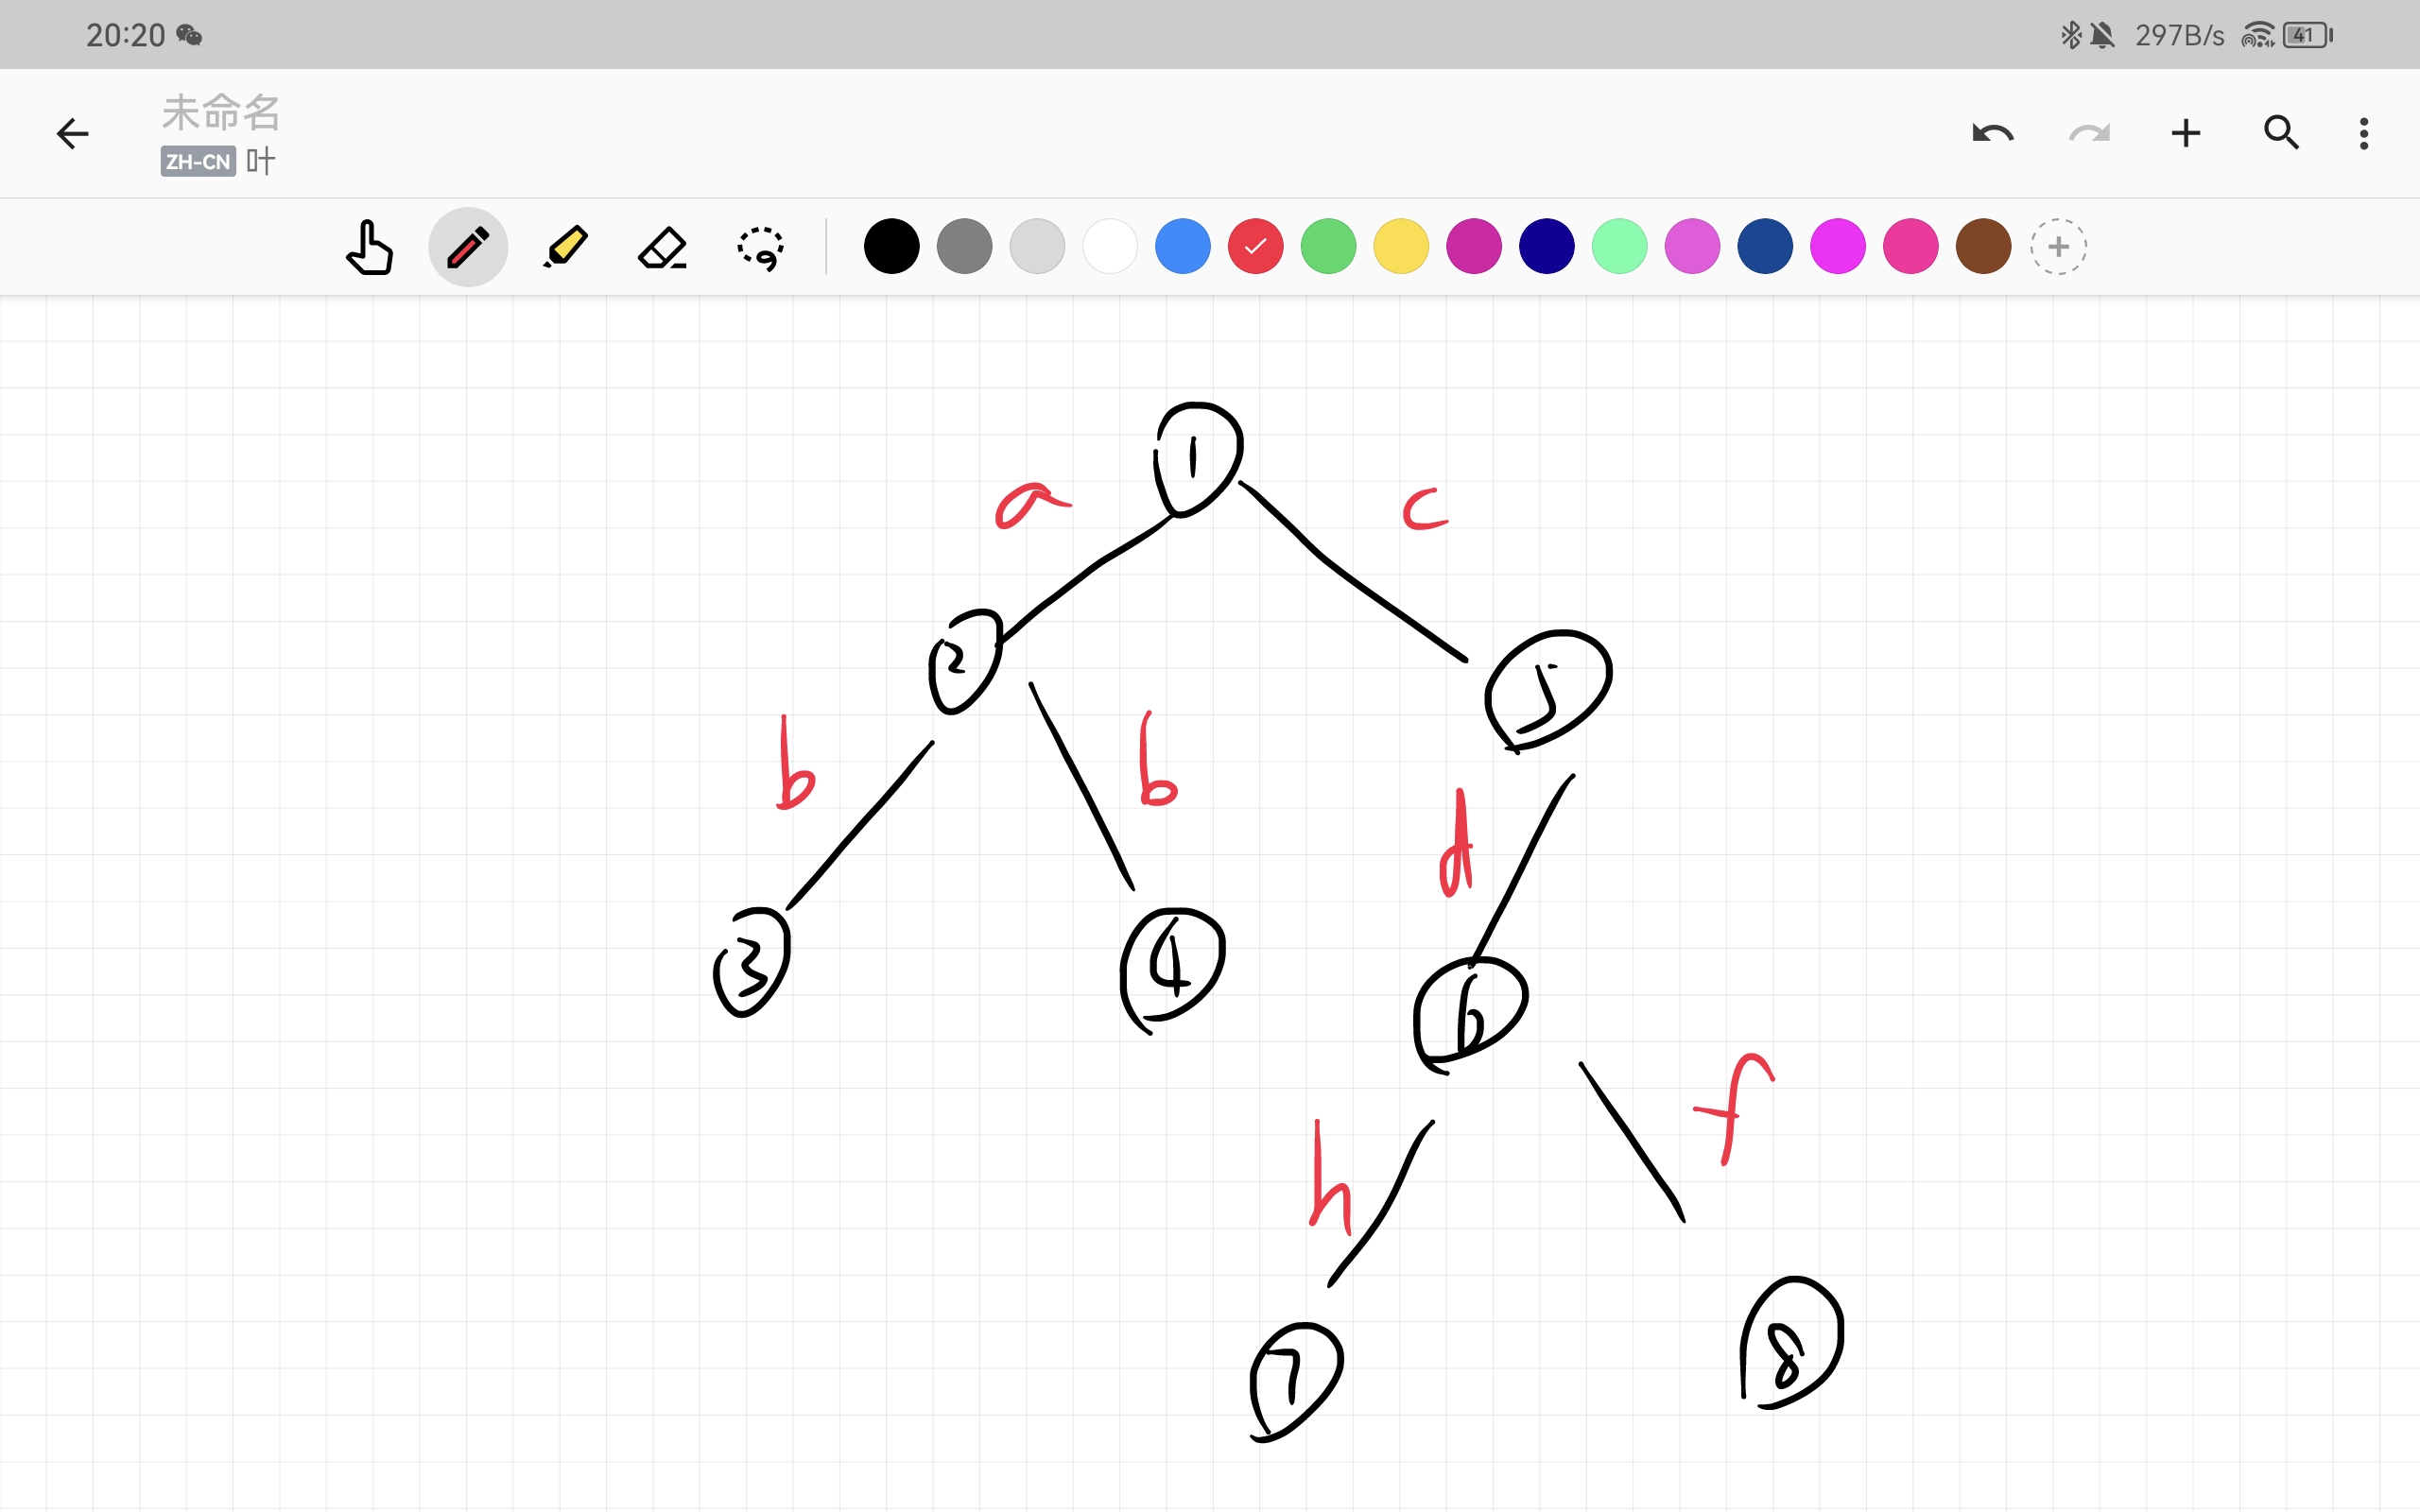 20:20 297B/s 41
未命名
ZH-CN 叶
1
a c
2 5
b b d
3 4 6
h f
7 8